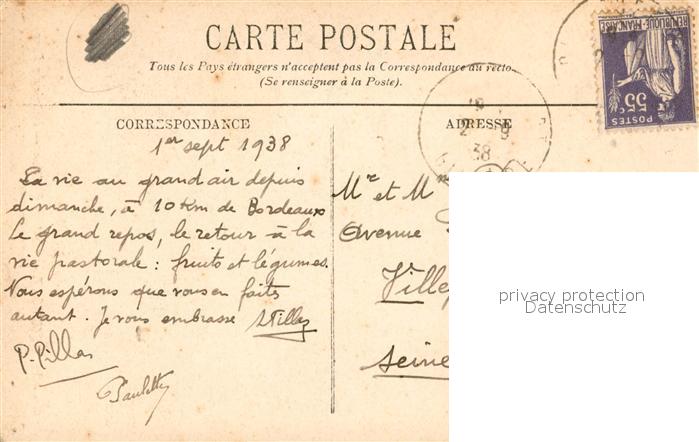 CARTE POSTALE
Tous les Pays étrangers n'acceptent pas la Correspondance au recto
(Se renseigner à la Poste).
CORRESPONDANCE
1er sept 1938
La vie au grand air depuis
dimanche, à 10 Km de Bordeaux
Le grand repos, le retour à la
vie pastorale : fruits et légumes.
Nous espérons que vous en faites
autant. Je vous embrasse
P. Pillas
Paulette
ADRESSE
Mr et M
Avenue
Ville
Seine
REPUBLIQUE FRANÇAISE
55c
POSTES
2 9
38
privacy protection
Datenschutz